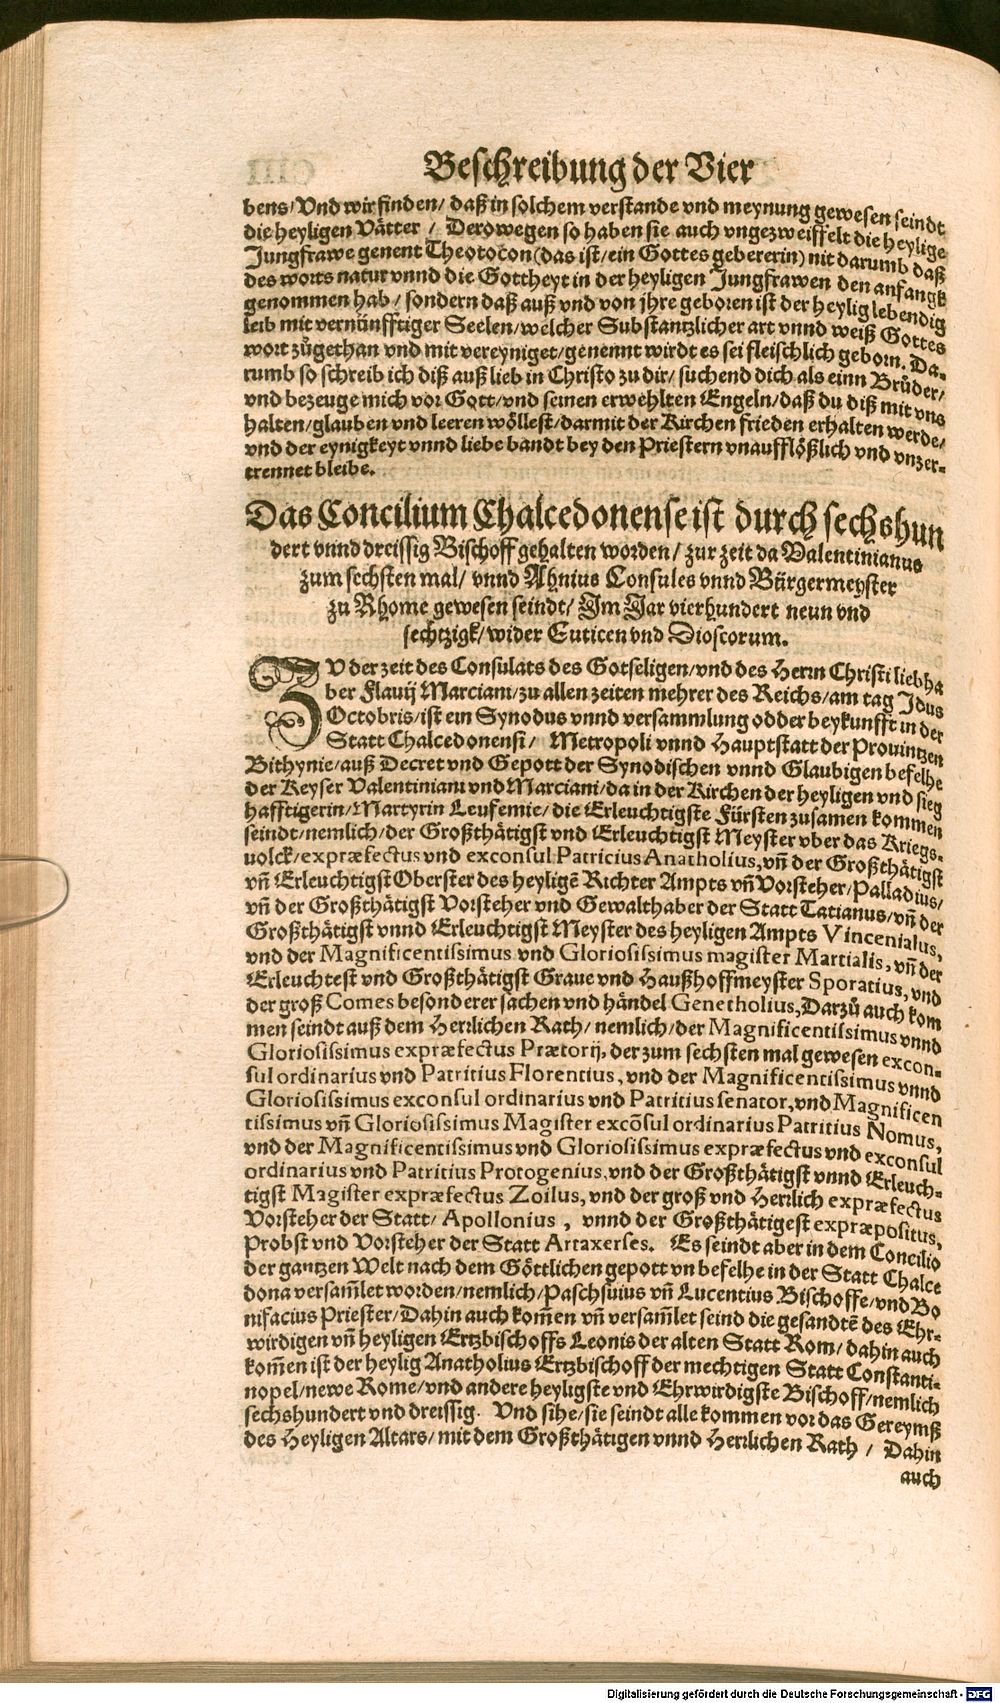 Beschreibung der Vier
bens/Vnd wir finden/ daß in solchem verstande vnd meynung gewesen seindt
die heyligen Vätter / Derowegen so haben sie auch vngezweiffelt die heylige
Jungfrawe genent Theotocon(das ist/ein Gottes gebererin) nit darumb daß
des worts natur vnnd die Gottheyt in der heyligen Jungfrawen den anfangk
genommen hab/ sondern daß auß vnd von jhre geboren ist der heylig lebendig
leib mit vernünfftiger Seelen/welcher Substantzlicher art vnnd weiß Gottes
wort zůgethan vnd mit vereyniget/genennt wirdt es sei fleischlich geborn. Da-
rumb so schreib ich diß auß lieb in Christo zu dir/ suchend dich als einn Brůder/
vnd bezeuge mich vor Gott/vnd seinen erwehlten Engeln/daß du diß mit vns
halten/glauben vnd leeren wöllest/darmit der Kirchen frieden erhalten werde/
vnd der eynigkeyt vnnd liebe bandt bey den Priestern vnaufflößlich vnd vnzer-
trennet bleibe.
Das Concilium Chalcedonense ist durch sechshun
dert vnnd dreissig Bischoff gehalten worden/ zur zeit da Valentinianus
zum sechsten mal/ vnnd Ahnius Consules vnnd Bürgermeyster
zu Rhome gewesen seindt/ Im Jar vierhundert neun vnd
sechtzigk/wider Euticen vnd Dioscorum.
ZV der zeit des Consulats des Gotseligen/vnd des Herrn Christi liebha
ber Flavij Marciani/zu allen zeiten mehrer des Reichs/am tag Idus
Octobris/ist ein Synodus vnnd versammlung odder beykunfft in der
Statt Chalcedonensi/ Metropoli vnnd Hauptstatt der Prouintzen
Bithynie/auß Decret vnd Gepott der Synodischen vnnd Glaubigen befelhe
der Keyser Valentiniani vnd Marciani/da in der Kirchen der heyligen vnd sieg
hafftigerin/Martyrin Leufemie/die Erleuchtigste Fürsten zusamen kommen
seindt/nemlich/der Großthätigst vnd Erleuchtigst Meyster vber das Kriegs-
uolck/expræfectus vnd exconsul Patricius Anatholius,vn̄ der Großthätigst
vn̄ Erleuchtigst Oberster des heyligē Richter Ampts vn̄ Vorsteher/Palladius/
vn̄ der Großthätigst Vorsteher vnd Gewalthaber der Statt Tatianus/vn̄ der
Großthätigst vnnd Erleuchtigst Meyster des heyligen Ampts Vincenialus,
vnd der Magnificentissimus vnd Gloriosissimus magister Martialis, vn̄ der
Erleuchtest vnd Großthätigst Graue vnd Haußhoffmeyster Sporatius, vnd
der groß Comes besonderer sachen vnd händel Genetholius,Darzů auch kom
men seindt auß dem Herrlichen Rath/ nemlich/der Magnificentissimus vnnd
Gloriosissimus expræfectus Prætorij, der zum sechsten mal gewesen excon-
sul ordinarius vnd Patritius Florentius, vnd der Magnificentissimus vnnd
Gloriosissimus exconsul ordinarius vnd Patritius senator,vnd Magnificen
tissimus vn̄ Gloriosissimus Magister excōsul ordinarius Patritius Nomus,
vnd der Magnificentissimus vnd Gloriosissimus expræfectus vnd exconsul
ordinarius vnd Patritius Protogenius,vnd der Großthätigst vnnd Erleuch-
tigst Magister expræfectus Zoilus, vnd der groß vnd Herrlich expræfectus
Vorsteher der Statt/ Apollonius , vnnd der Großthätigest expræpositus,
Probst vnd Vorsteher der Statt Artaxerses. Es seindt aber in dem Concilio
der gantzen Welt nach dem Göttlichen gepott vn befelhe in der Statt Chalce
dona versam̄let worden/nemlich/Paschsuius vn̄ Lucentius Bischoffe/vnd Bo
nifacius Priester/Dahin auch kom̄en vn̄ versam̄let seind die gesandtē des Ehr-
wirdigen vn̄ heyligen Ertzbischoffs Leonis der alten Statt Rom/ dahin auch
kom̄en ist der heylig Anatholius Ertzbischoff der mechtigen Statt Constanti-
nopel/newe Rome/vnd andere heyligste vnd Ehrwirdigste Bischoff/nemlich
sechshundert vnd dreissig. Vnd sihe/sie seindt alle kommen vor das Gereymß
des Heyligen Altars/mit dem Großthätigen vnnd Herrlichen Rath / Dahin
auch
Digitalisierung gefördert durch die Deutsche Forschungsgemeinschaft - DFG